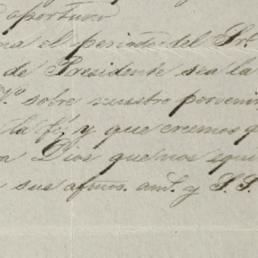 oportuno
na el periodo del Sr
de Presidente sea la
sobre nuestro porveni
la fé, y que creemos q
a Dios que nos equi
sus afmos. am.s y S. S.